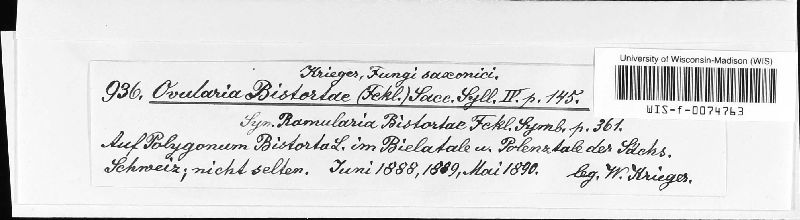 Krieger, Fungi saxonici.
936. Ovularia Bistortae (Fckl.) Sacc. Syll. IV. p. 145.
Syn. Ramularia Bistortae Fckl. Symb. p. 361.
Auf Polygonum Bistorta L. im Bielatale u. Polenztale der Sächs.
Schweiz; nicht selten. Juni 1888, 1889, Mai 1890. leg. W. Krieger.
University of Wisconsin-Madison (WIS)
WIS-f-0074763